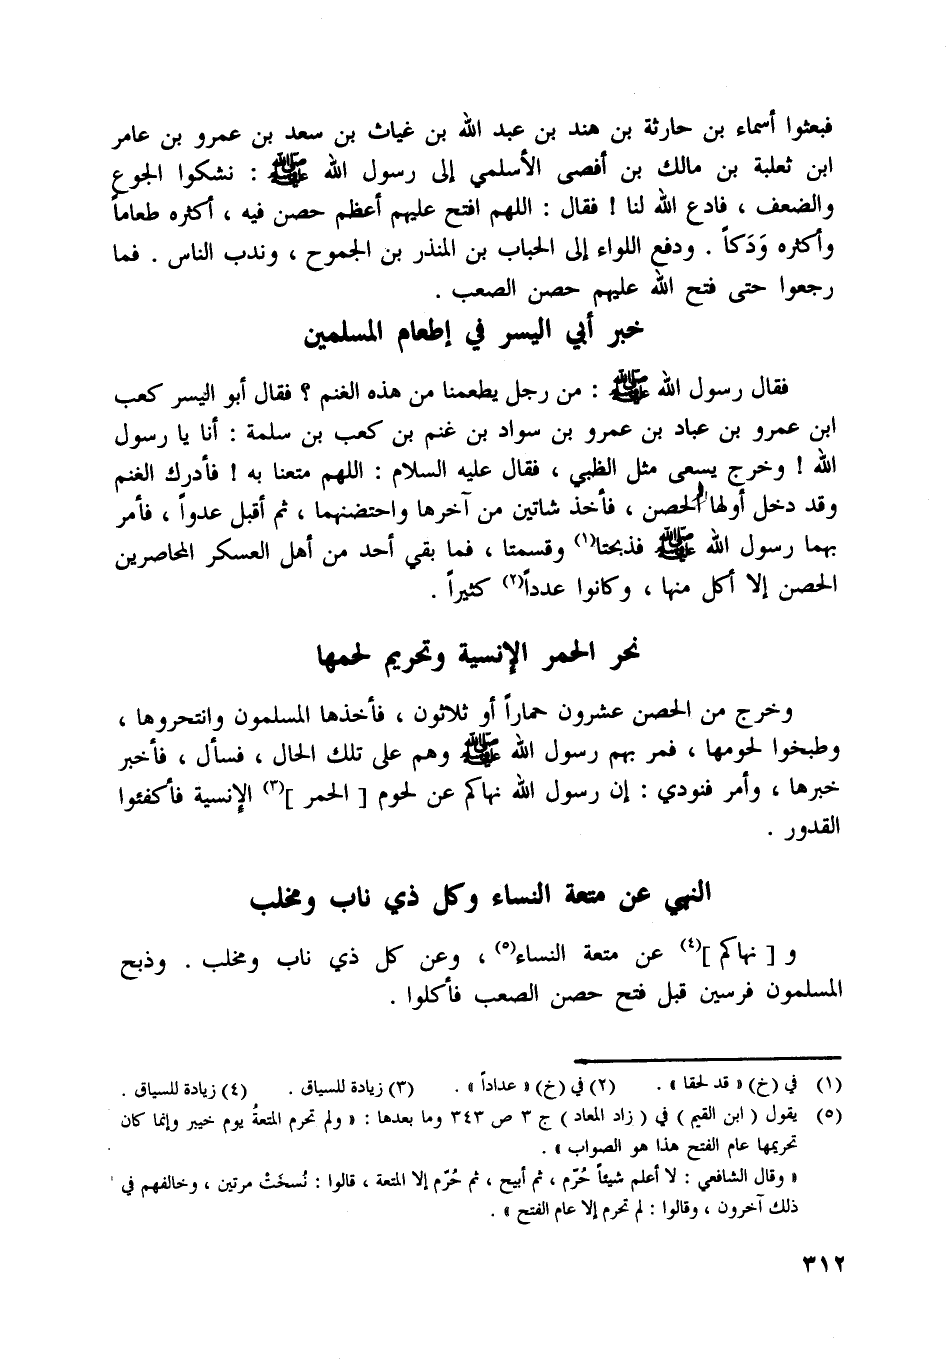 فبعثوا أسماء بن حارثة بن هند بن عبد الله بن غياث بن سعد بن عمرو بن عامر
ابن ثعلبة بن مالك بن أفصى الأسلمي إلى رسول الله ﷺ : نشكوا الجوع
والضعف ، فادع الله لنا ! فقال : اللهم افتح عليهم أعظم حصن فيه ، أكثره طعاماً
وأكثره وَدَكاً . ودفع اللواء إلى الحباب بن المنذر بن الجموح ، وندب الناس . فما
رجعوا حتى فتح الله عليهم حصن الصعب .
خبر أبي اليسر في إطعام المسلمين
فقال رسول الله ﷺ : من رجل يطعمنا من هذه الغنم ؟ فقال أبو اليسر كعب
ابن عمرو بن عباد بن عمرو بن سواد بن غنم بن كعب بن سلمة : أنا يا رسول
الله ! وخرج يسعى مثل الظبي ، فقال عليه السلام : اللهم متعنا به ! فأدرك الغنم
وقد دخل أولها الحصن ، فأخذ شاتين من آخرها واحتضنهما ، ثم أقبل عدواً ، فأمر
بهما رسول الله ﷺ فذبحتا(١) وقسمتا ، فما بقي أحد من أهل العسكر المحاصرين
الحصن إلا أكل منها ، وكانوا عدداً(٢) كثيراً .
نحر الحمر الإنسية وتحريم لحمها
وخرج من الحصن عشرون حماراً أو ثلاثون ، فأخذها المسلمون وانتحروها ،
وطبخوا لحومها ، فمر بهم رسول الله ﷺ وهم على تلك الحال ، فسأل ، فأخبر
خبرها ، وأمر فنودي : إن رسول الله نهاكم عن لحوم [ الحمر ](٣) الإنسية فأكفئوا
القدور .
النهي عن متعة النساء وكل ذي ناب ومخلب
و [ نهاكم ](٤) عن متعة النساء(٥) ، وعن كل ذي ناب ومخلب . وذبح
المسلمون فرسين قبل فتح حصن الصعب فأكلوا .
(١) في (خ) « قد لحقا » . (٢) في (خ) « عداداً » . (٣) زيادة للسياق . (٤) زيادة للسياق .
(٥) يقول ( ابن القيم ) في ( زاد المعاد ) ج ٣ ص ٣٤٣ وما بعدها : « ولم تحرم المتعةُ يوم خيبر وإنما كان
تحريمها عام الفتح هذا هو الصواب » .
« وقال الشافعي : لا أعلم شيئاً حُرّم ، ثم أبيح ، ثم حُرّم إلا المتعة ، قالوا : نُسخَتْ مرتين ، وخالفهم في
ذلك آخرون ، وقالوا : لم تحرم إلا عام الفتح » .
٣١٢